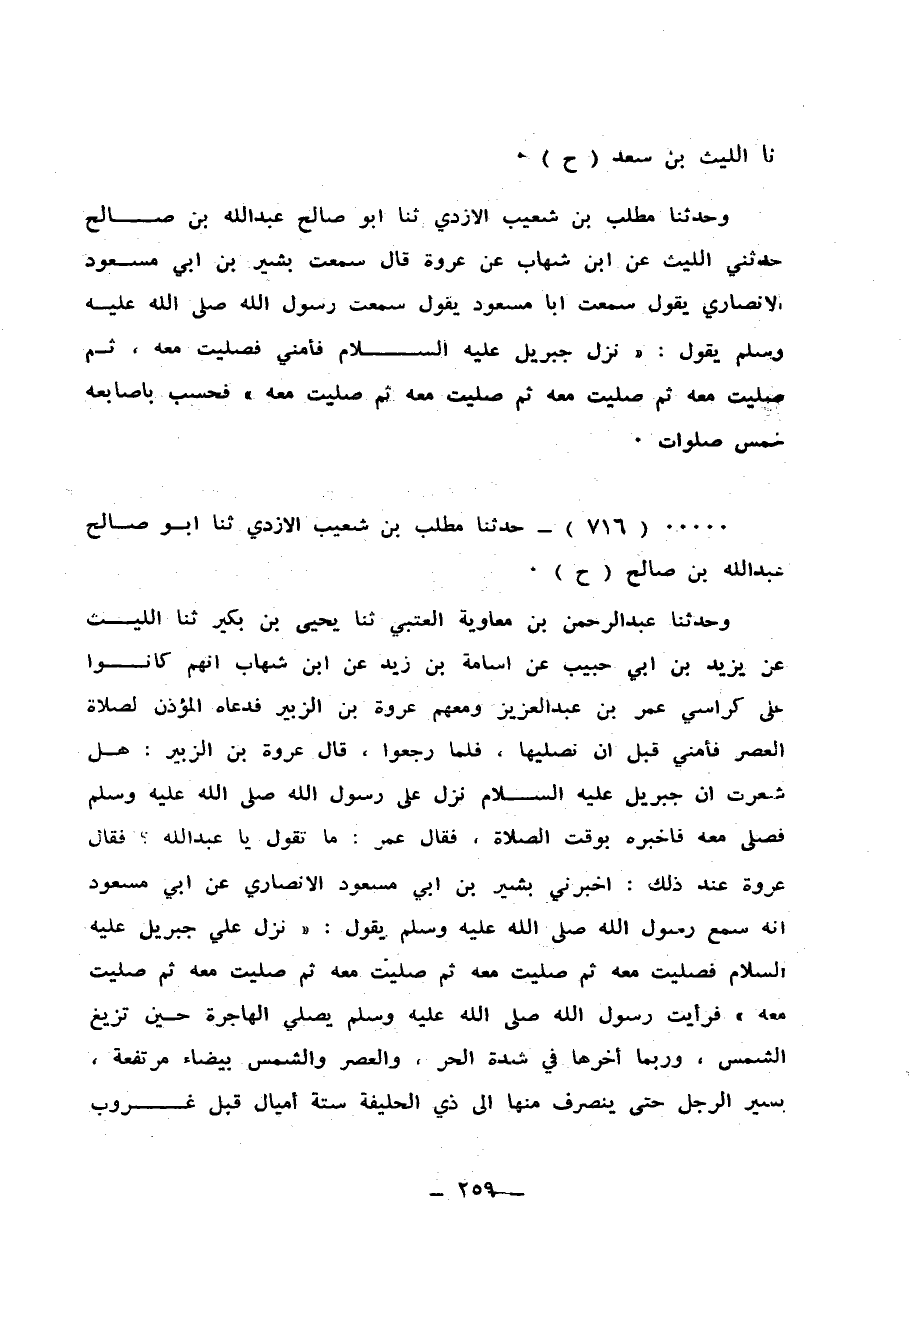 نا الليث بن سعد ( ح ) ٠
وحدثنا مطلب بن شعيب الازدي ثنا ابو صالح عبدالله بن صـــالح
حدثني الليث عن ابن شهاب عن عروة قال سمعت بشير بن ابي مسـعود
الانصاري يقول سمعت ابا مسعود يقول سمعت رسول الله صلى الله عليـه
وسلم يقول : « نزل جبريل عليه الســـلام فأمني فصليت معه ، ثـم
صليت معه ثم صليت معه ثم صليت معه ثم صليت معه » فحسب باصابعه
خمس صلوات ٠
٠٠٠٠٠ ( ٧١٦ ) ــ حدثنا مطلب بن شعيب الازدي ثنا ابـو صــالح
عبدالله بن صالح ( ح ) ٠
وحدثنا عبدالرحمن بن معاوية العتبي ثنا يحيى بن بكير ثنا الليــث
عن يزيد بن ابي حبيب عن اسامة بن زيد عن ابن شهاب انهم كانــوا
على كراسي عمر بن عبدالعزيز ومعهم عروة بن الزبير فدعاه المؤذن لصلاة
العصر فأمني قبل ان نصليها ، فلما رجعوا ، قال عروة بن الزبير : هـل
شعرت ان جبريل عليه الســـلام نزل على رسول الله صلى الله عليه وسلم
فصلى معه فاخبره بوقت الصلاة ، فقال عمر : ما تقول يا عبدالله ؟ فقال
عروة عند ذلك : اخبرني بشير بن ابي مسعود الانصاري عن ابي مسعود
انه سمع رسول الله صلى الله عليه وسلم يقول : « نزل علي جبريل عليه
السلام فصليت معه ثم صليت معه ثم صليت معه ثم صليت معه ثم صليت
معه » فرأيت رسول الله صلى الله عليه وسلم يصلي الهاجرة حـين تزيغ
الشمس ، وربما أخرها في شدة الحر ، والعصر والشمس بيضاء مرتفعة ،
يسير الرجل حتى ينصرف منها الى ذي الحليفة ستة أميال قبل غــــروب
ــ ٢٥٩ ــ